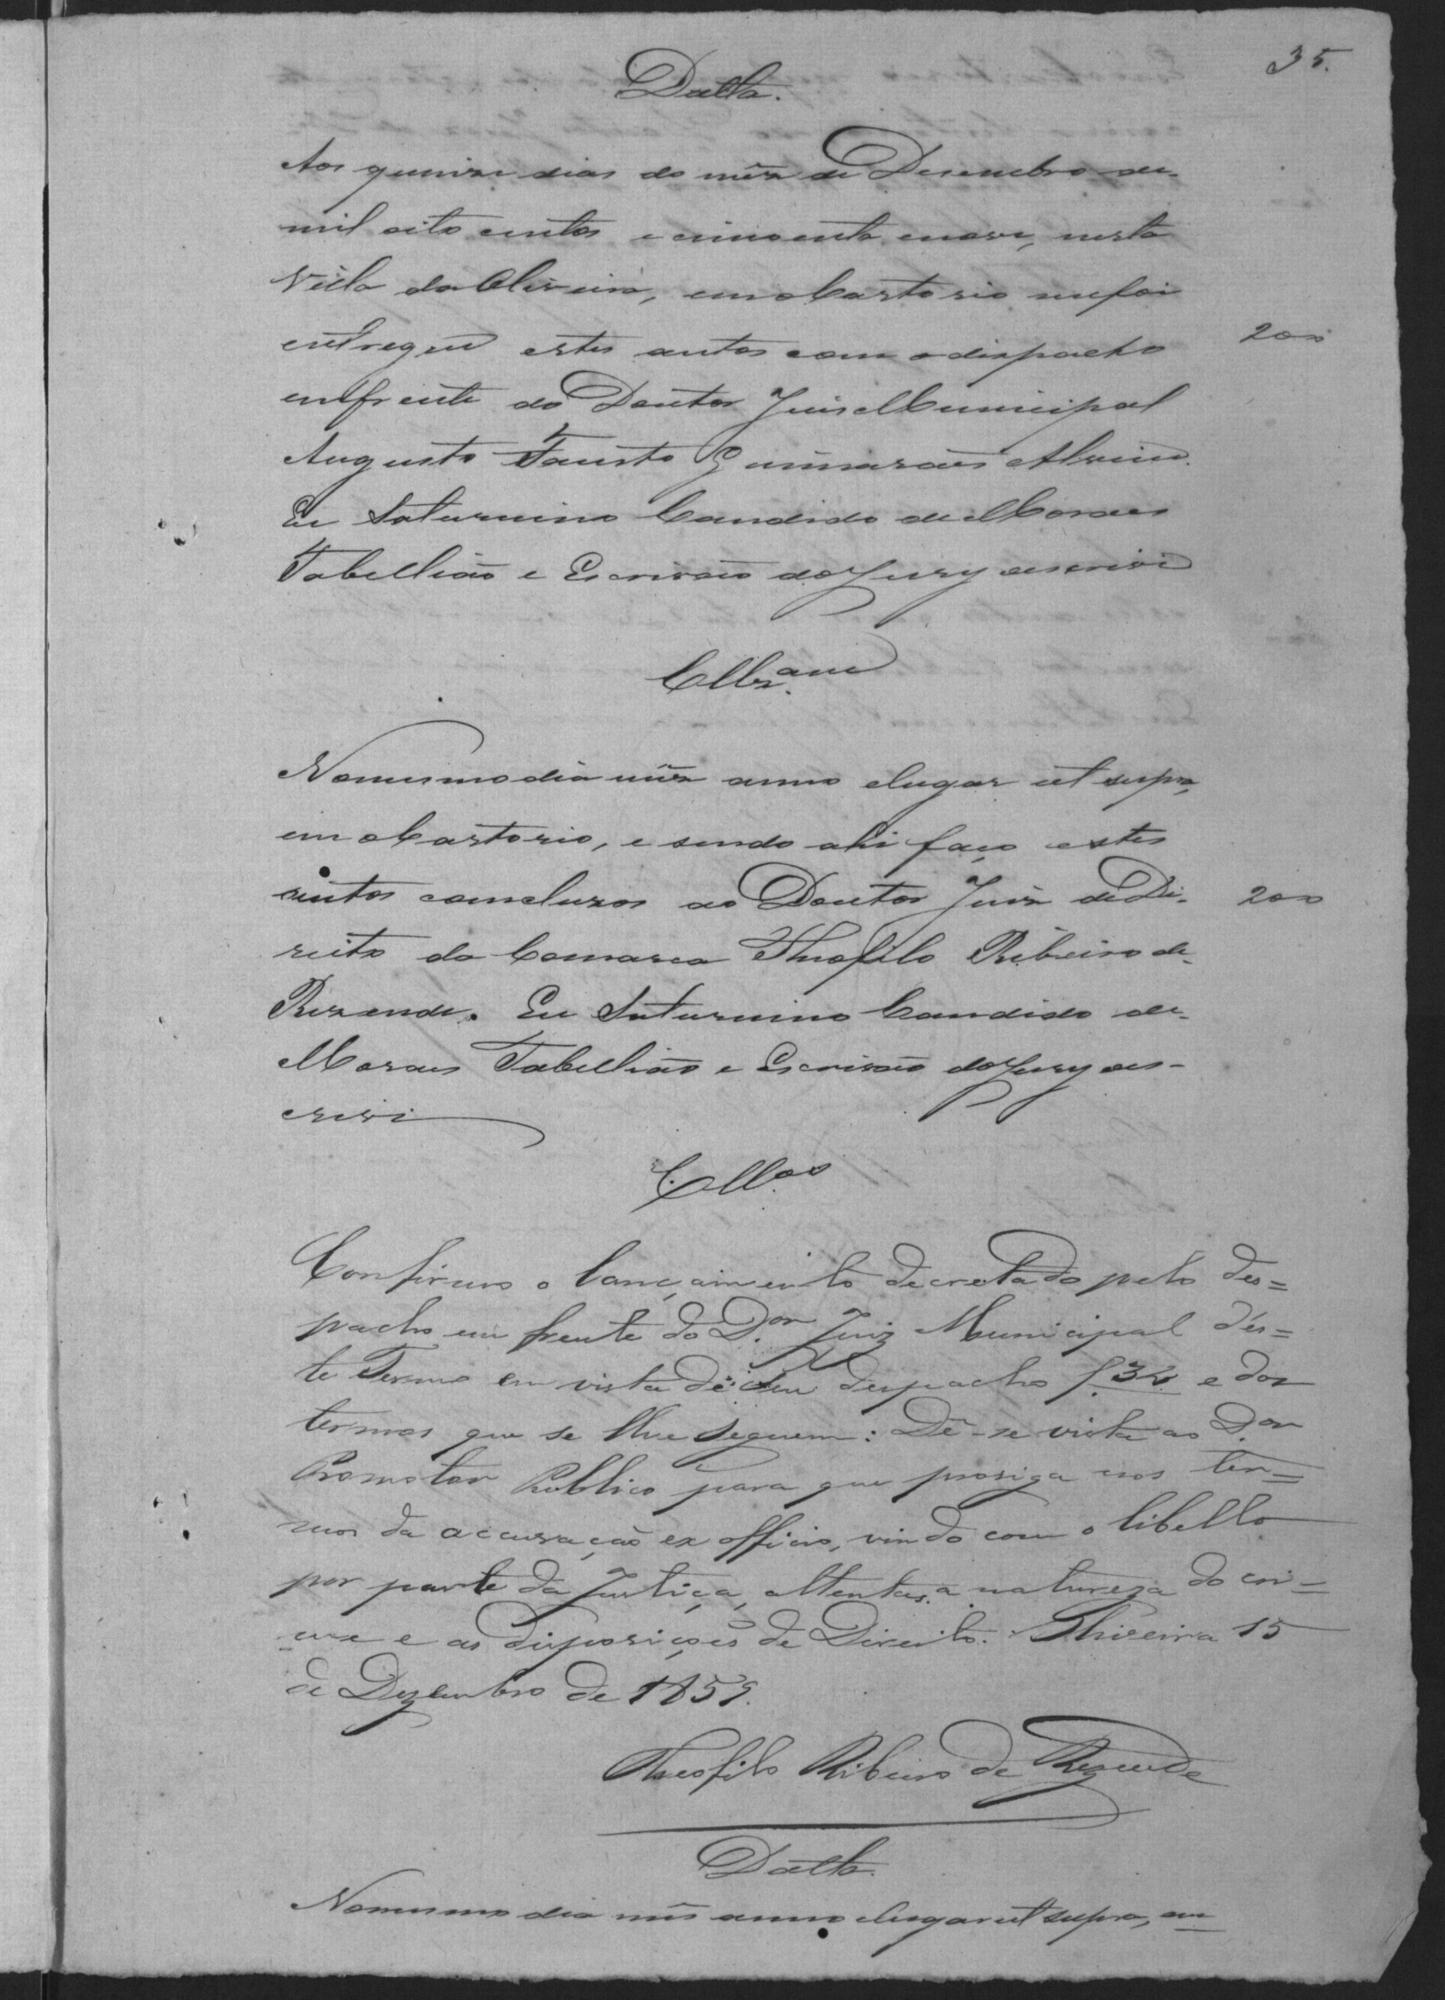 35.
Datta.
Aos quinze dias do mês de Desembro de
mil oito centos e cincoenta enove, nesta
Villa da Oliveira, em o Cartorio me foi
entregue estes autos com o dispacho
em frente do Doutor Juis Municipal
200
Augusto Fausto Guimarães Alvim.
Eu Saturnino Candido de Moraes
Tabellião e Escrivão do Jury oescrivi
Cllz.am
No mesmo dia mês anno elugar ut supra,
em o Cartorio, e sendo ahi faço estes
autos concluzos ao Doutor Juiz de Di-
200
reito da Comarca Theofilo Ribeiro de
Rezende. Eu Saturnino Candido de
Moraes Tabellião e Escrivão do Jury oes-
crivi
Cll.os
Confirmo o lançamento decretado pelo des=
pacho em frente do D.or Juiz Municipal des=
te Termo em vista de seu despacho f 32 e dos
termos que se lhe seguem: Dê-se vista ao D.or
Promotor Publico para que prosiga nos ter=
mos da accusação ex officio, vindo com o libello
por parte da Justiça, attentas a natureza do cri=
me e as disposições de Direito. Oliveira 15
de Dezembro de 1859.
Theofilo Ribeiro de Rezende
Datta.
No mesmo dia mês anno elugar ut supra, em